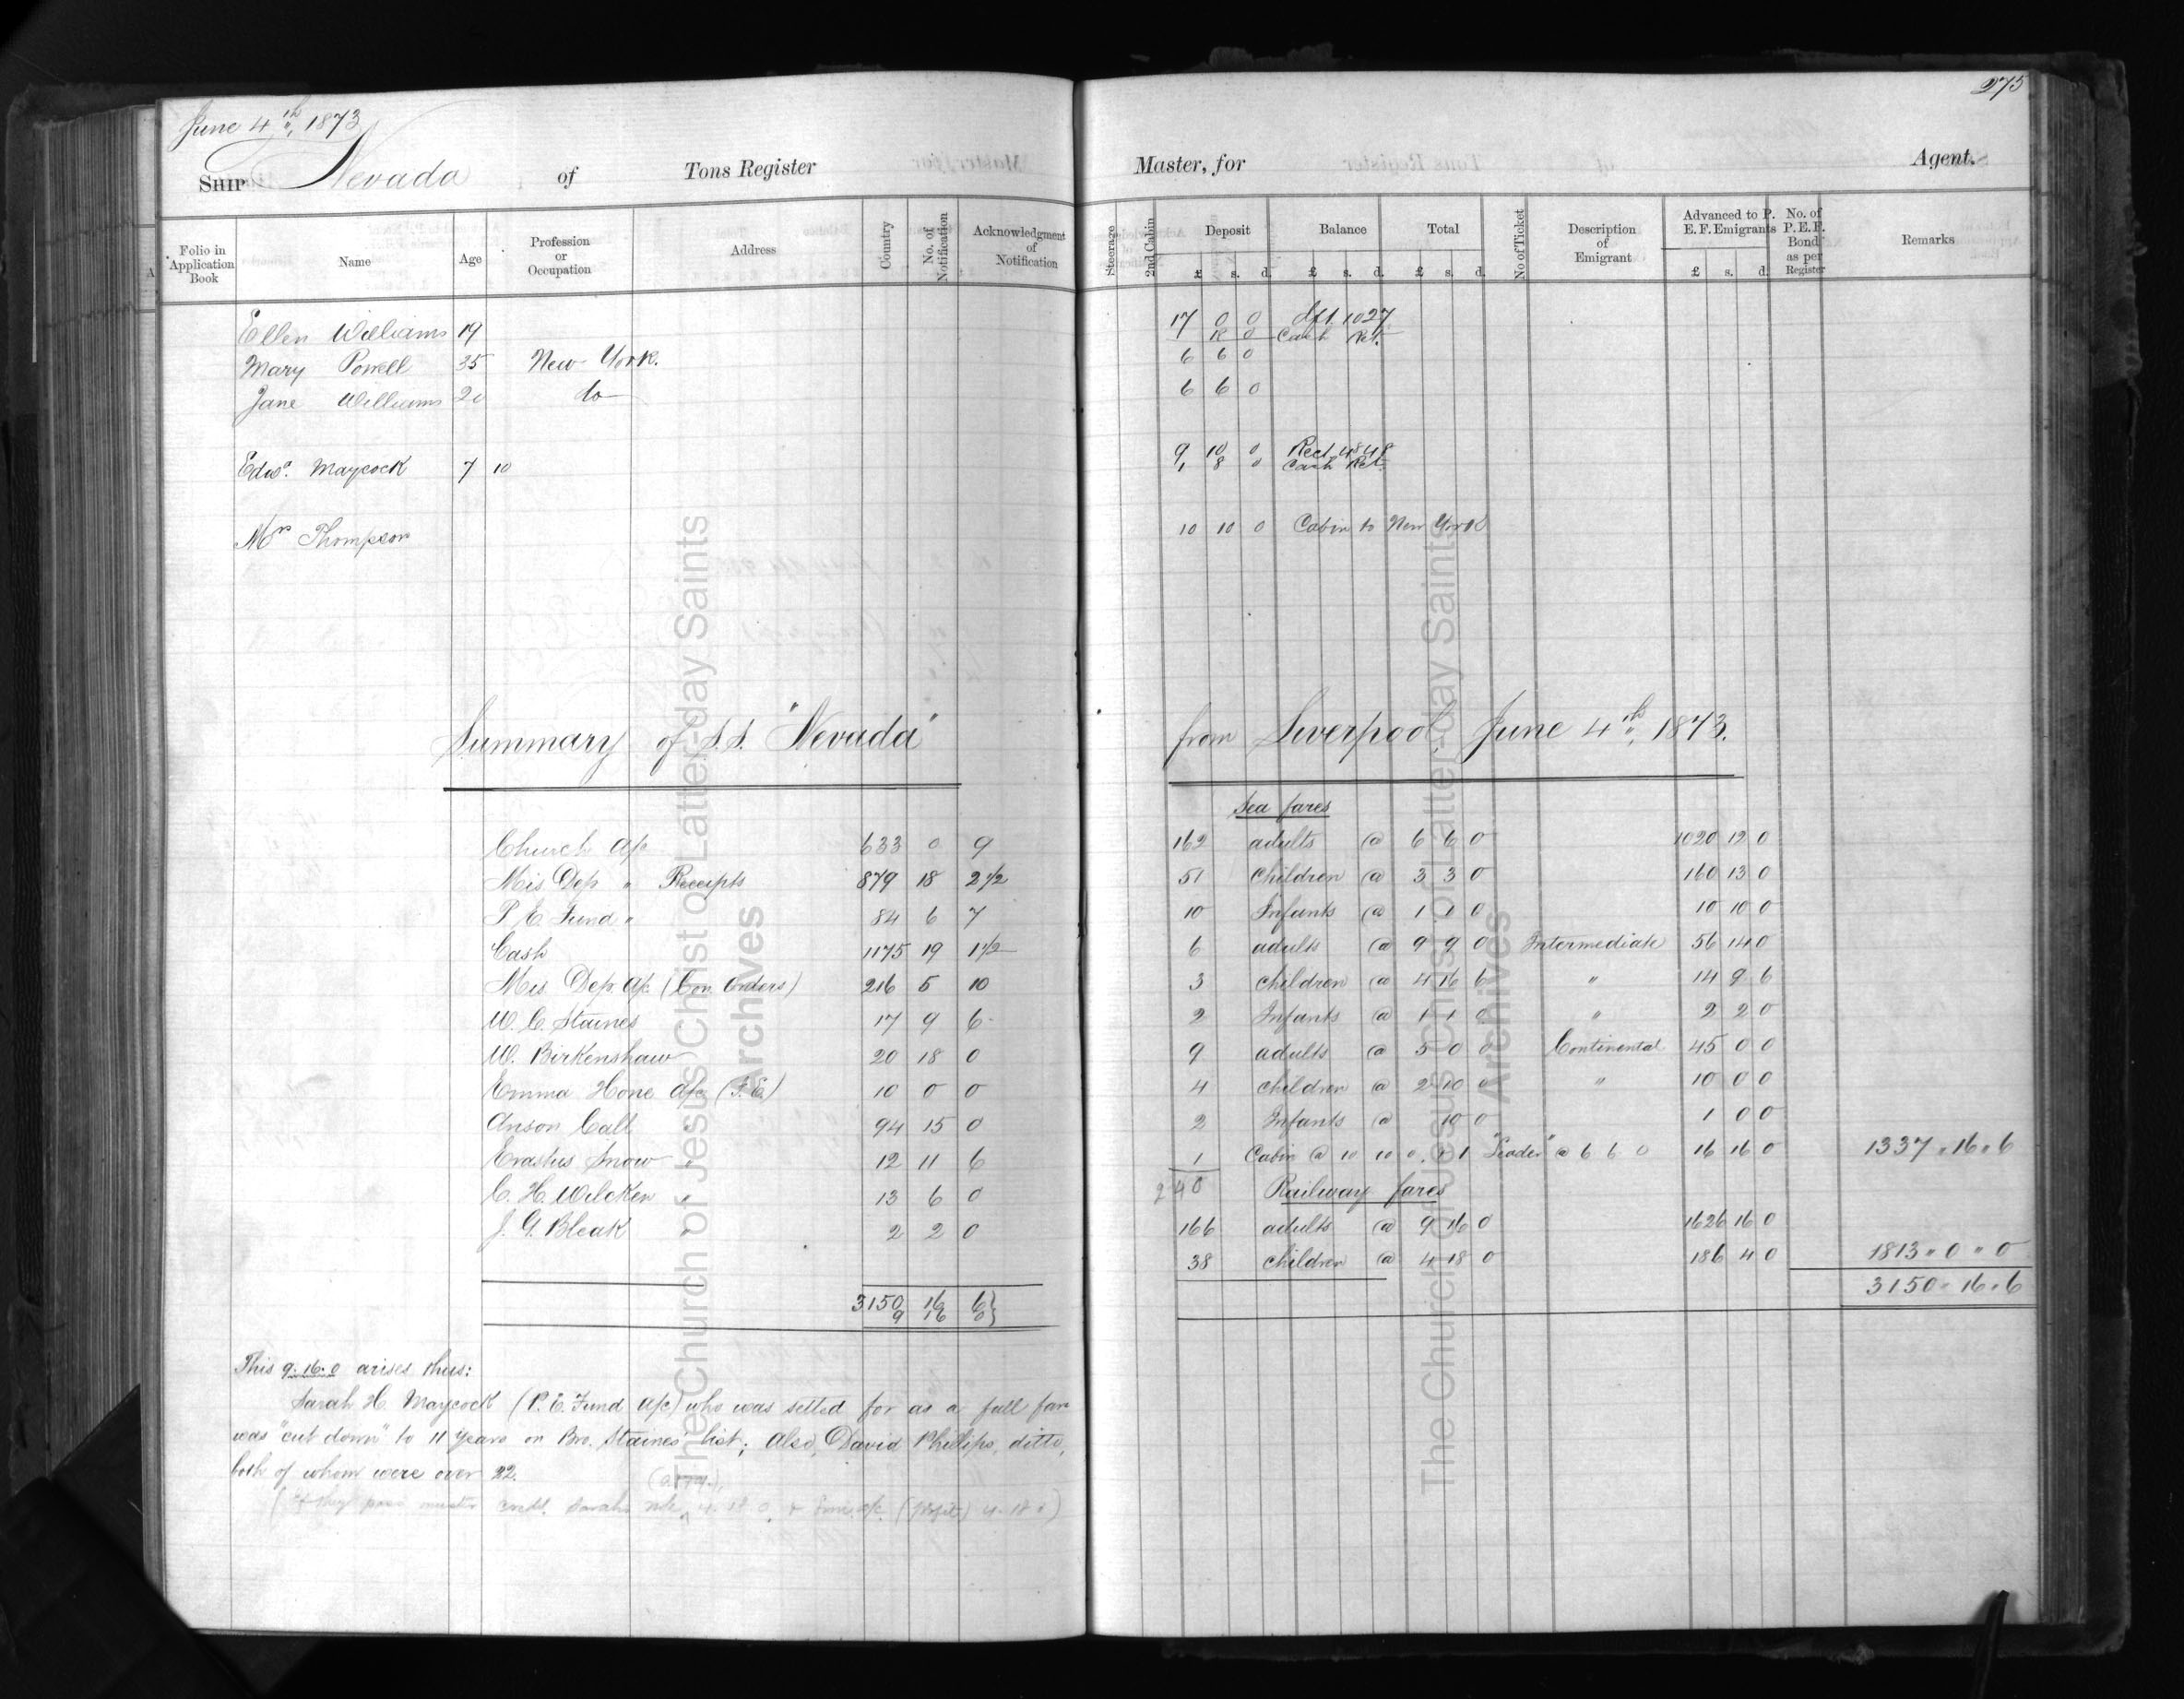 275
June 4th, 1873
Ship Nevada of Tons Register Master, for Agent.
Folio in Application Book Name Age Profession or Occupation Address Country No. of Notification Acknowledgment of Notification Steerage 2nd Cabin Deposit Balance Total No of Ticket Description of Emigrant Advanced to P. E. F. Emigrants No. of P. E. F. Bond as per Register Remarks
£ s. d. £ s. d. £ s. d. £ s. d.
Ellen Williams 19 17 0 0 dft. 1027
0 Cash Ret.
Mary Powell 35 New York. 6 6 0
Jane Williams 20 do 6 6 0
Edwd. Maycock 7 10 9 10 0 Rect 4848
1 8 0 Cash Ret.
Mrs Thompson 10 10 0 Cabin to New York
Summary of S.S. "Nevada" from Liverpool, June 4th, 1873.
Sea fares
Church a/c 633 0 9 162 adults @ 6 6 0 1020 12 0
Mis Dep " Receipts 879 18 2 1/2 51 Children @ 3 3 0 160 13 0
P E Fund " 84 6 7 10 Infants @ 1 1 0 10 10 0
Cash 1175 19 1 1/2 6 adults @ 9 9 0 Intermediate 56 14 0
Mis Dep. a/c (Con. Orders) 216 5 10 3 children @ 4 16 6 " 14 9 6
W. C. Staines 17 9 6 2 Infants @ 1 1 0 " 2 2 0
W. Birkenshaw 20 18 0 9 adults @ 5 0 0 Continental 45 0 0
Emma Hone a/c (F.E.) 10 0 0 4 children @ 2 10 0 " 10 0 0
Anson Call " 94 15 0 2 Infants @ 10 0 1 0 0
Erastus Snow " 12 11 6 1 Cabin @ 10 10 0. 1 "Leader" @ 6 6 0 16 16 0 1337 " 16 " 6
C. H. Wilcken " 13 6 0 240 Railway fares
J. G. Bleak " 2 2 0 166 adults @ 9 16 0 1626 16 0
38 children @ 4 18 0 186 4 0 1813 " 0 " 0
3150 16 6} 3150 " 16 " 6
9 16 0}
This 9. 16. 0 arises thus:
Sarah H. Maycock (P. E. Fund a/c) who was settled for as a full fare
was "cut down" to 11 years on Bro. Staines' list; also, David Phillips, ditto,
both of whom were over 22.
The Church of Jesus Christ of Latter-day Saints
Archives
The Church of Jesus Christ of Latter-day Saints
Archives